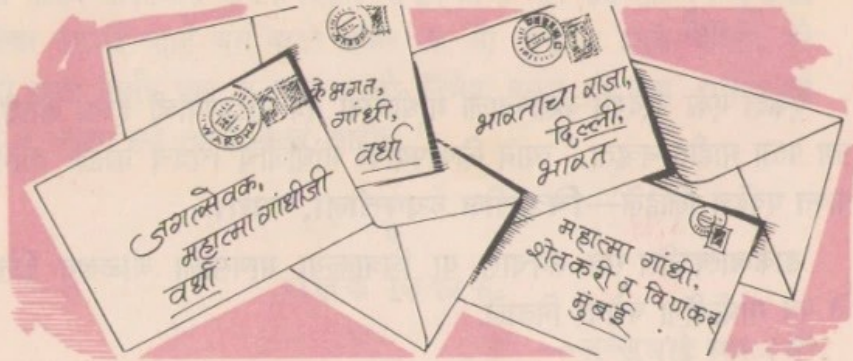 WARDHA
जगत्सेवक,
महात्मा गांधीजी
वर्धा
के भगत,
गांधी,
वर्धा
भारताचा राजा,
दिल्ली,
भारत
महात्मा गांधी,
शेतकरी व विणकर
मुंबई